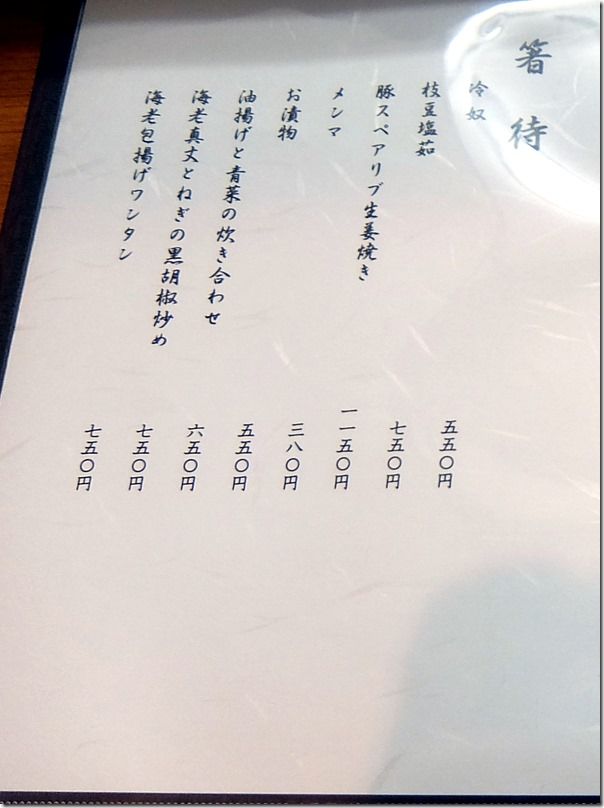 箸待
冷奴 五五〇円
枝豆塩茹 七五〇円
豚スペアリブ生姜焼き 一一五〇円
メンマ 三八〇円
お漬物 五五〇円
油揚げと青菜の炊き合わせ 六五〇円
海老真丈とねぎの黒胡椒炒め 七五〇円
海老包揚げワンタン 七五〇円